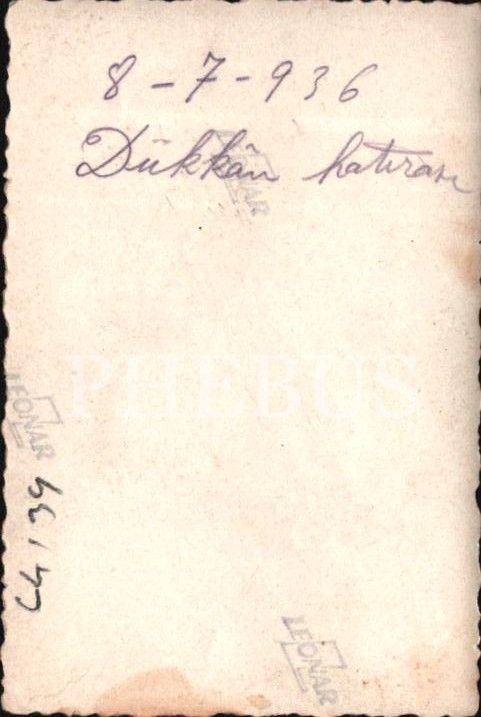 8-7-936
Dükkân hatırası
PHEBUS
LEONAR
LEONAR
LEONAR